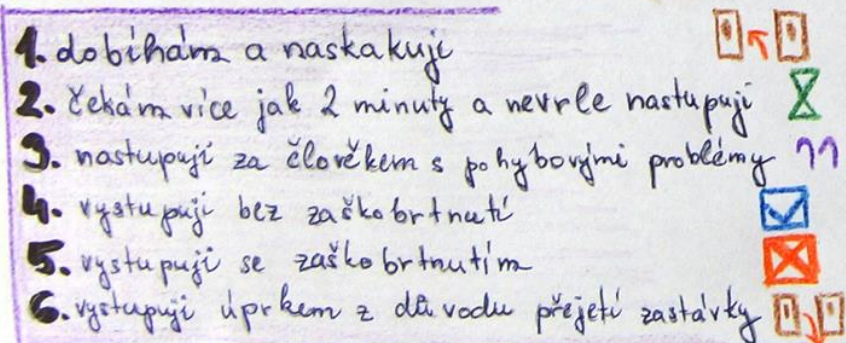 1. dobíhám a naskakuji
2. čekám více jak 2 minuty a nevrle nastupuji
3. nastupuji za člověkem s pohybovými problémy
4. vystupuji bez zaškobrtnutí
5. vystupuji se zaškobrtnutím
6. vystupuji úprkem z důvodu přejetí zastávky